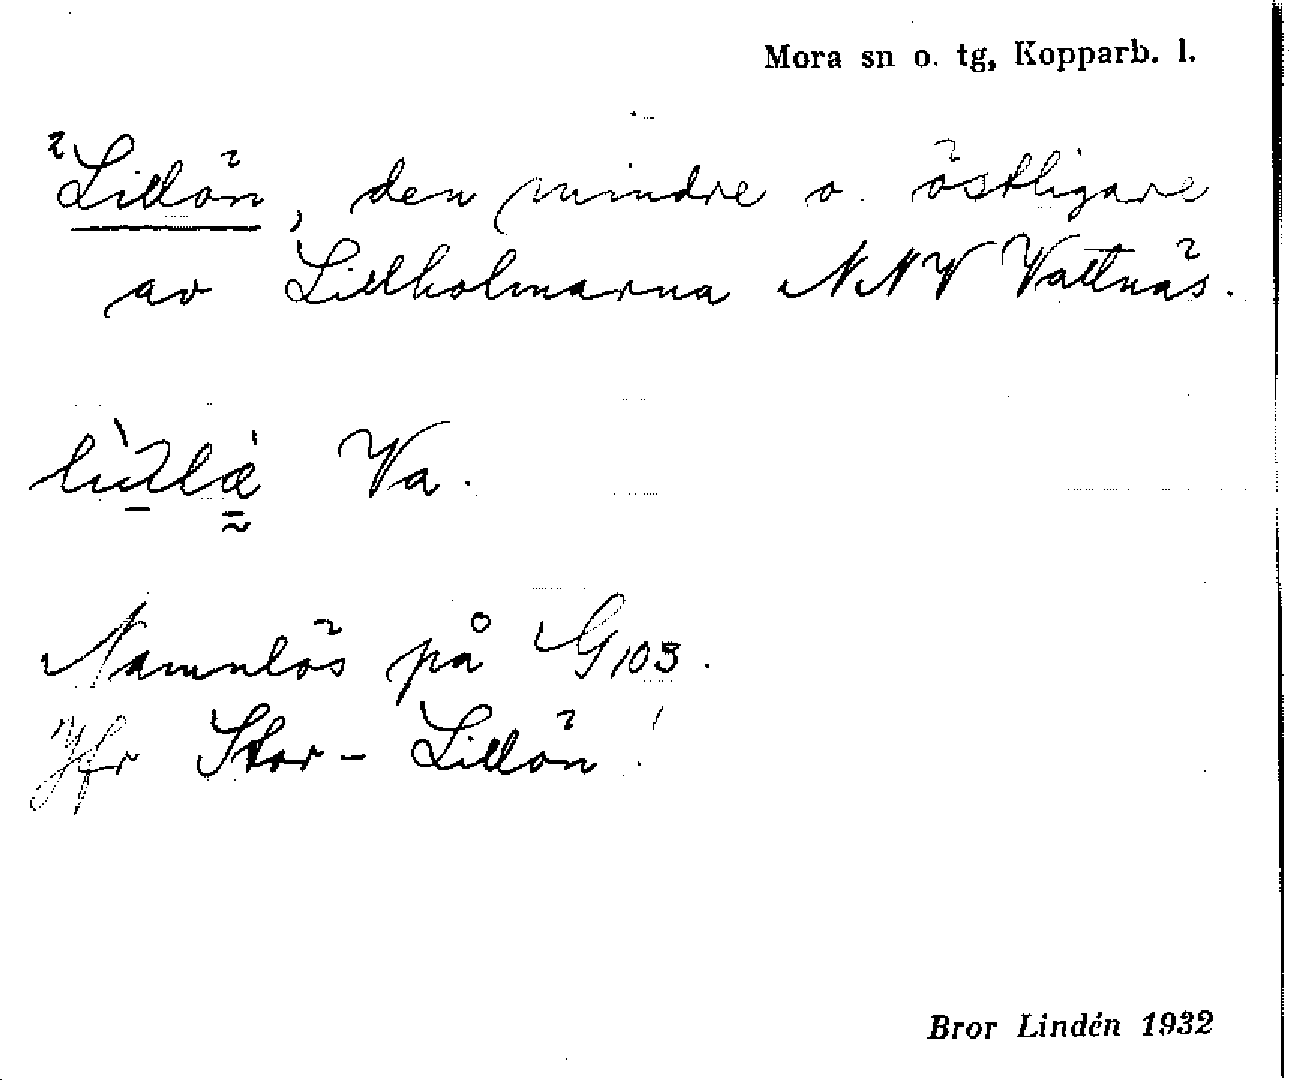 Mora sn o. tg, Kopparb. l.
²Lillön, den mindre o. östligare
av Lillholmarna NNV Vattnäs.
Va.
Namnlös på G103.
Jfr Stor-Lillön!
Bror Lindén 1932